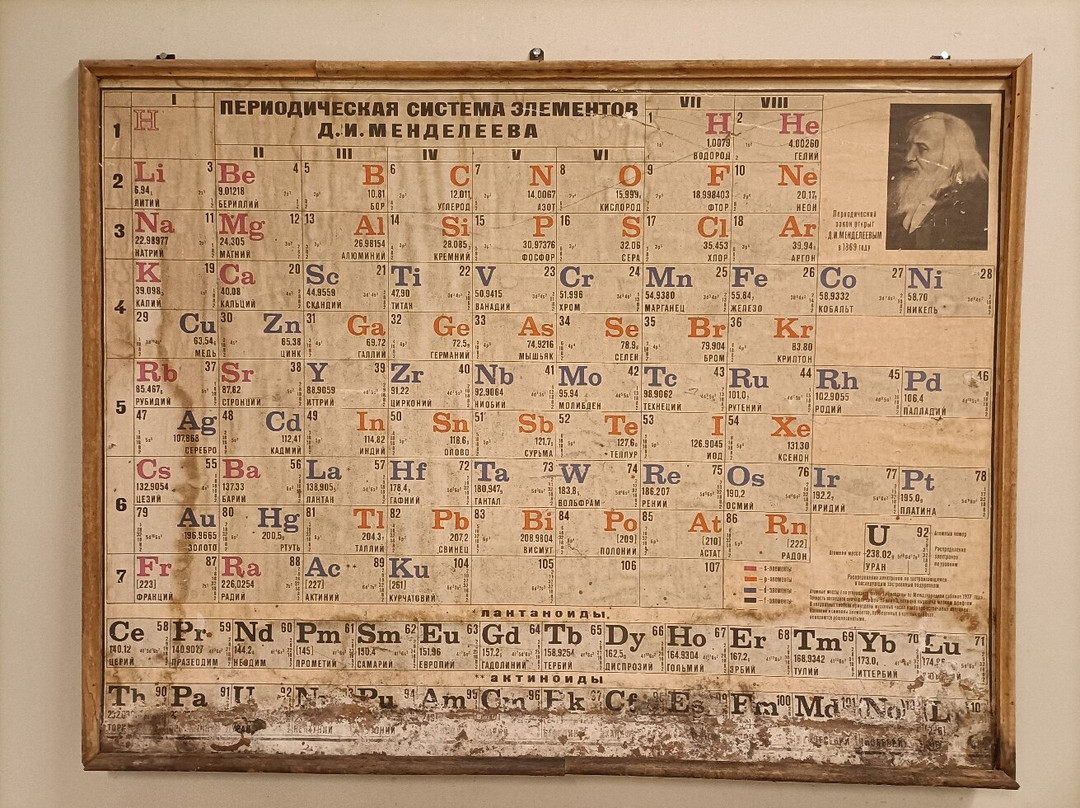 ПЕРИОДИЧЕСКАЯ СИСТЕМА ЭЛЕМЕНТОВ
Д.И.МЕНДЕЛЕЕВА
I II III IV V VI VII VIII
1 H 1 H 2 He
1.0079 4.00260
ВОДОРОД ГЕЛИЙ
2 Li 3 Be 4 5 B 6 C 7 N 8 O 9 F 10 Ne
6.94, 9.01218 10.81 12.011, 14.0067 15.999, 18.998403 20.17,
ЛИТИЙ БЕРИЛЛИЙ БОР УГЛЕРОД АЗОТ КИСЛОРОД ФТОР НЕОН
3 Na 11 Mg 12 13 Al 14 Si 15 P 16 S 17 Cl 18 Ar
22.98977 24.305 26.98154 28.085, 30.97376 32.06 35.453 39.94,
НАТРИЙ МАГНИЙ АЛЮМИНИЙ КРЕМНИЙ ФОСФОР СЕРА ХЛОР АРГОН
Периодический
закон открыт
Д.И.МЕНДЕЛЕЕВЫМ
в 1869 году
4 K 19 Ca 20 Sc 21 Ti 22 V 23 Cr 24 Mn 25 Fe 26 Co 27 Ni 28
39.098, 40.08 44.9559 47.90 50.9415 51.996 54.9380 55.84, 58.9332 58.70
КАЛИЙ КАЛЬЦИЙ СКАНДИЙ ТИТАН ВАНАДИЙ ХРОМ МАРГАНЕЦ ЖЕЛЕЗО КОБАЛЬТ НИКЕЛЬ
29 Cu 30 Zn 31 Ga 32 Ge 33 As 34 Se 35 Br 36 Kr
63.54, 65.38 69.72 72.5, 74.9216 78.9, 79.904 83.80
МЕДЬ ЦИНК ГАЛЛИЙ ГЕРМАНИЙ МЫШЬЯК СЕЛЕН БРОМ КРИПТОН
5 Rb 37 Sr 38 Y 39 Zr 40 Nb 41 Mo 42 Tc 43 Ru 44 Rh 45 Pd 46
85.467, 87.62 88.9059 91.22 92.9064 95.94 98.9062 101.0, 102.9055 106.4
РУБИДИЙ СТРОНЦИЙ ИТТРИЙ ЦИРКОНИЙ НИОБИЙ МОЛИБДЕН ТЕХНЕЦИЙ РУТЕНИЙ РОДИЙ ПАЛЛАДИЙ
47 Ag 48 Cd 49 In 50 Sn 51 Sb 52 Te 53 I 54 Xe
107.868 112.41 114.82 118.6, 121.7, 127.6, 126.9045 131.30
СЕРЕБРО КАДМИЙ ИНДИЙ ОЛОВО СУРЬМА ТЕЛЛУР ИОД КСЕНОН
6 Cs 55 Ba 56 La 57 Hf 72 Ta 73 W 74 Re 75 Os 76 Ir 77 Pt 78
132.9054 137.33 138.905, 178.4, 180.947, 183.8, 186.207 190.2 192.2, 195.0,
ЦЕЗИЙ БАРИЙ ЛАНТАН ГАФНИЙ ТАНТАЛ ВОЛЬФРАМ РЕНИЙ ОСМИЙ ИРИДИЙ ПЛАТИНА
79 Au 80 Hg 81 Tl 82 Pb 83 Bi 84 Po 85 At 86 Rn
196.9665 200.5, 204.3, 207.2 208.9804 [209] [210] [222]
ЗОЛОТО РТУТЬ ТАЛЛИЙ СВИНЕЦ ВИСМУТ ПОЛОНИЙ АСТАТ РАДОН
U 92 Атомный номер
Атомная масса 238.02, Распределение
электронов
по уровням
УРАН
7 Fr 87 Ra 88 Ac 89 Ku 104 105 106 107
[223] 226.0254 [227] [261]
ФРАНЦИЙ РАДИЙ АКТИНИЙ КУРЧАТОВИЙ
s-элементы
p-элементы
d-элементы
f-элементы
*лантаноиды
Ce 58 Pr 59 Nd 60 Pm 61 Sm 62 Eu 63 Gd 64 Tb 65 Dy 66 Ho 67 Er 68 Tm 69 Yb 70 Lu 71
140.12 140.9077 144.2, [145] 150.4 151.96 157.2, 158.9254 162.5, 164.9304 167.2, 168.9342 173.0,
ЦЕРИЙ ПРАЗЕОДИМ НЕОДИМ ПРОМЕТИЙ САМАРИЙ ЕВРОПИЙ ГАДОЛИНИЙ ТЕРБИЙ ДИСПРОЗИЙ ГОЛЬМИЙ ЭРБИЙ ТУЛИЙ ИТТЕРБИЙ
**актиноиды
Th 90 Pa 91 U 92 Pu 94 Am 95 Cm 96 Bk 97 Cf Es Fm 100 Md 101 (No)